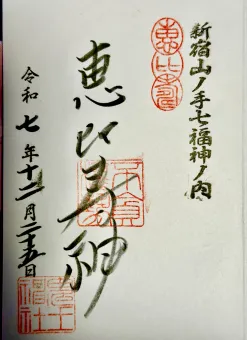 新宿山ノ手七福神ノ内
恵比寿
恵比寿神
令和七年十二月二十五日